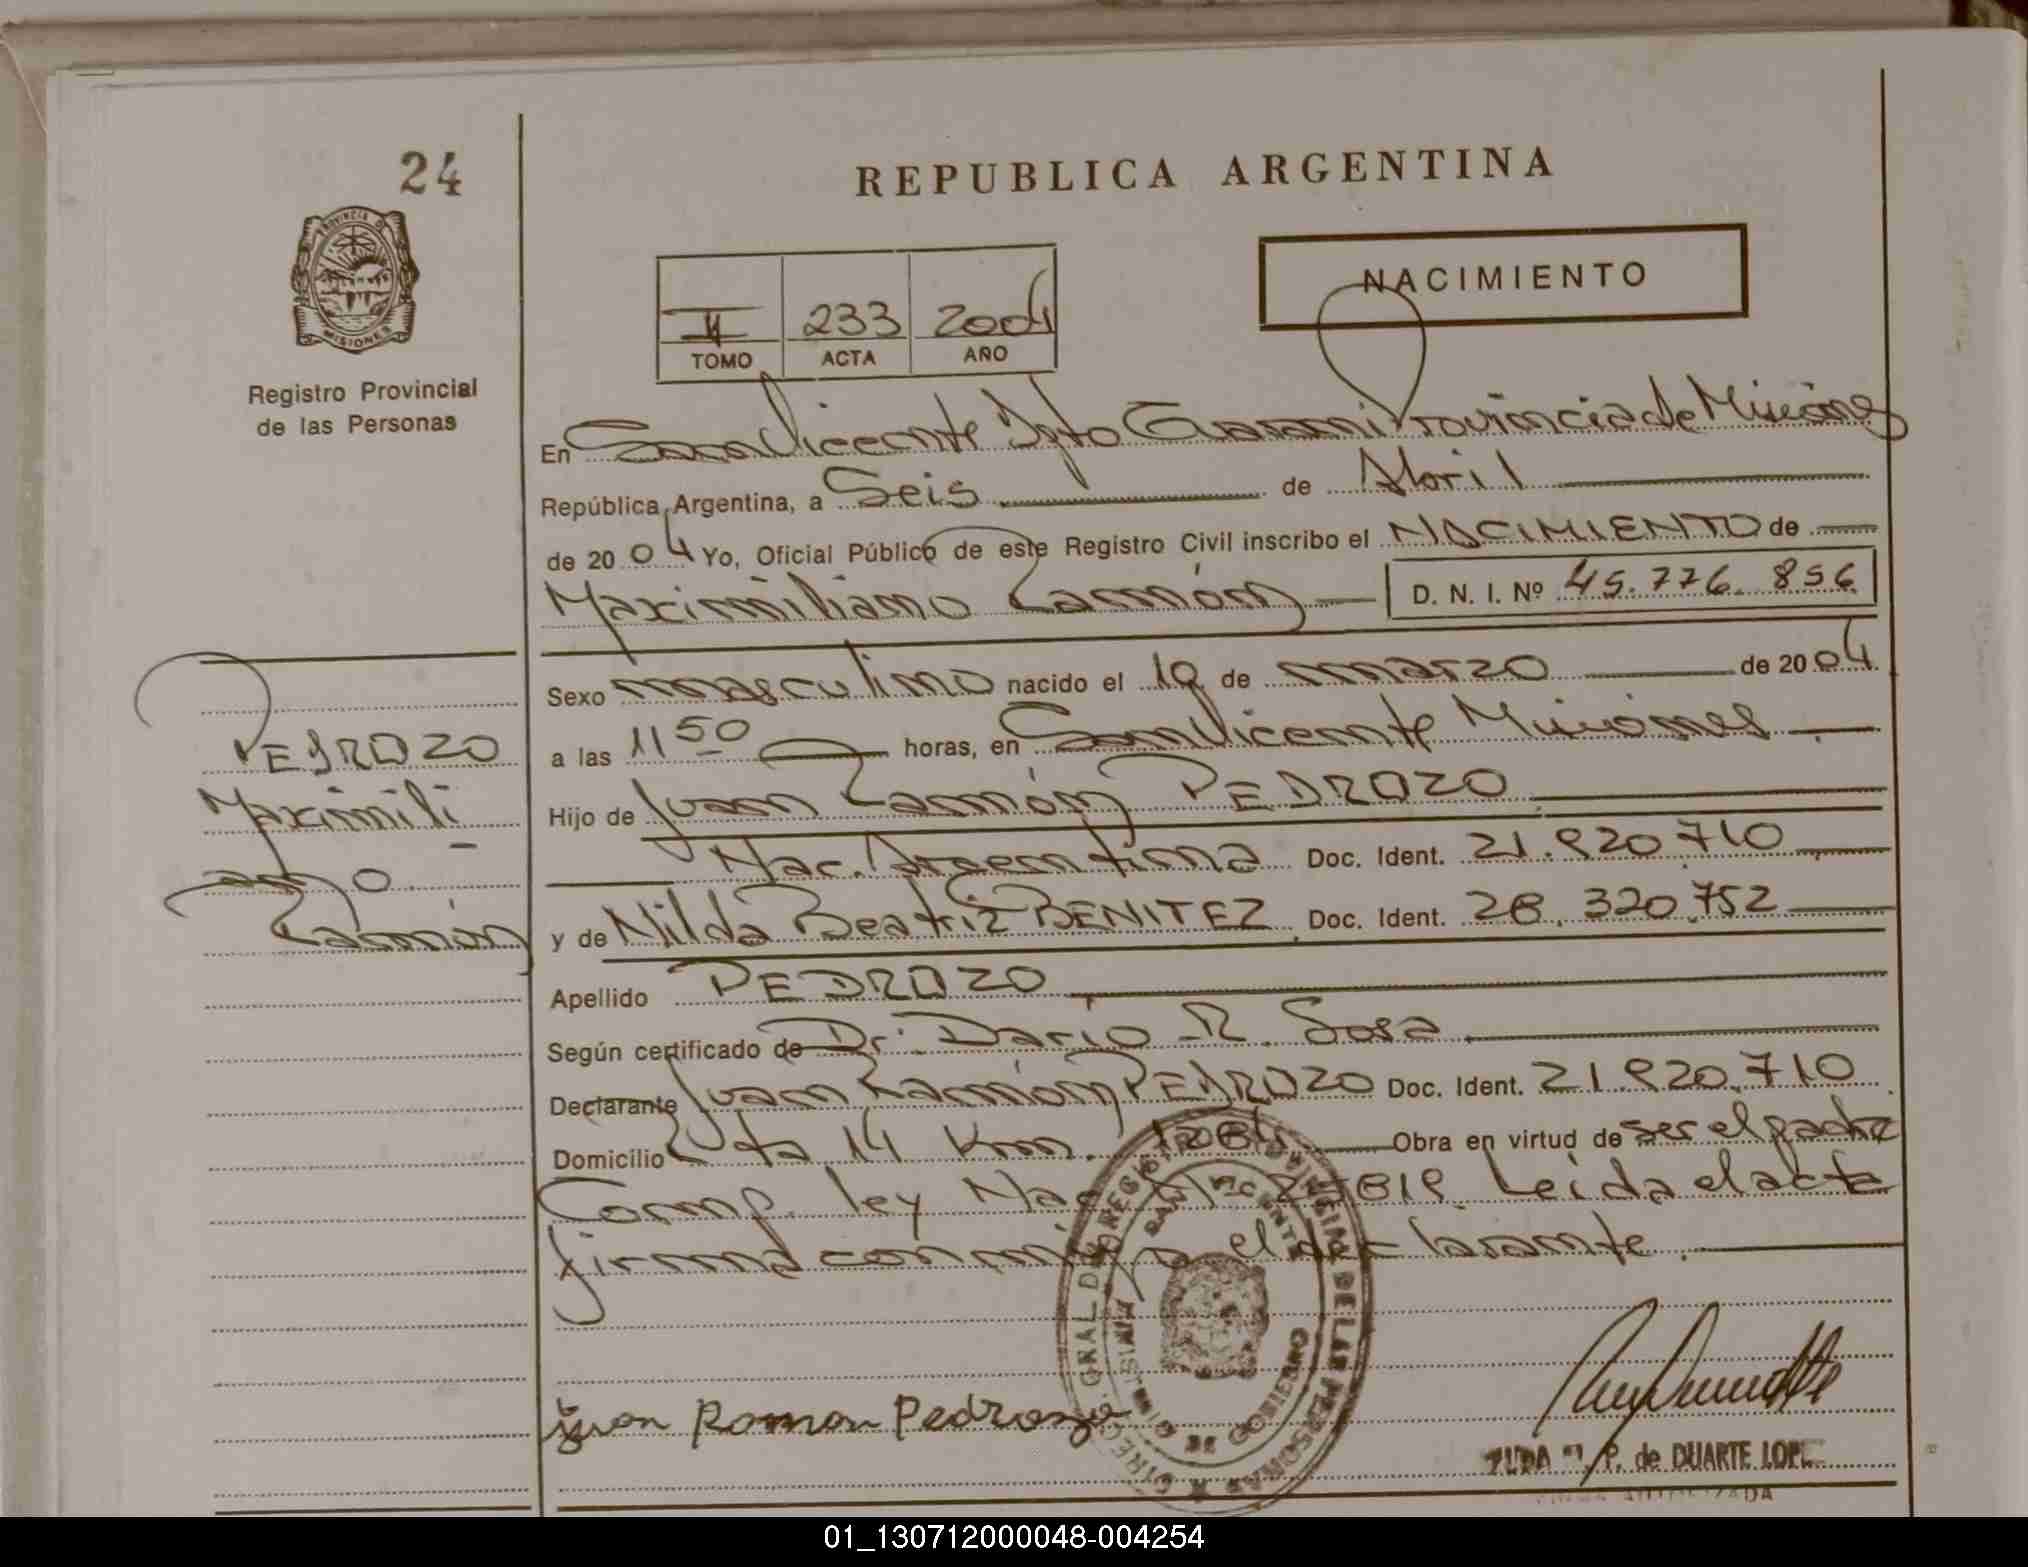 24
REPUBLICA ARGENTINA
PROVINCIA DE
MISIONES
Registro Provincial
de las Personas
NACIMIENTO
II 233 2004
TOMO ACTA AÑO
En San Vicente Dpto Guarani Provincia de Misiones
República Argentina, a Seis de Abril
de 2004 Yo, Oficial Público de este Registro Civil inscribo el NACIMIENTO de
Maximiliano Ramón D. N. I. Nº 45.776.856
Sexo masculino nacido el 19 de marzo de 2004
a las 11 50 horas, en San Vicente Misiones
Hijo de Juan Ramón PEDROZO
Nac. Argentina Doc. Ident. 21.920.710
y de Nilda Beatriz BENITEZ Doc. Ident. 28.320.752
Apellido PEDROZO
Según certificado de Dr. Dario R. Sosa
Declarante Juan Ramón PEDROZO Doc. Ident. 21.920.710
Domicilio Ruta 14 Km. Obra en virtud de ser el padre
Comp. ley Nac Leida el acta
firma conmigo el declarante.
PEDROZO
Maximili
ano
Ramón
juan Ramon Pedrozo
P. de DUARTE LOPE
01_130712000048-004254